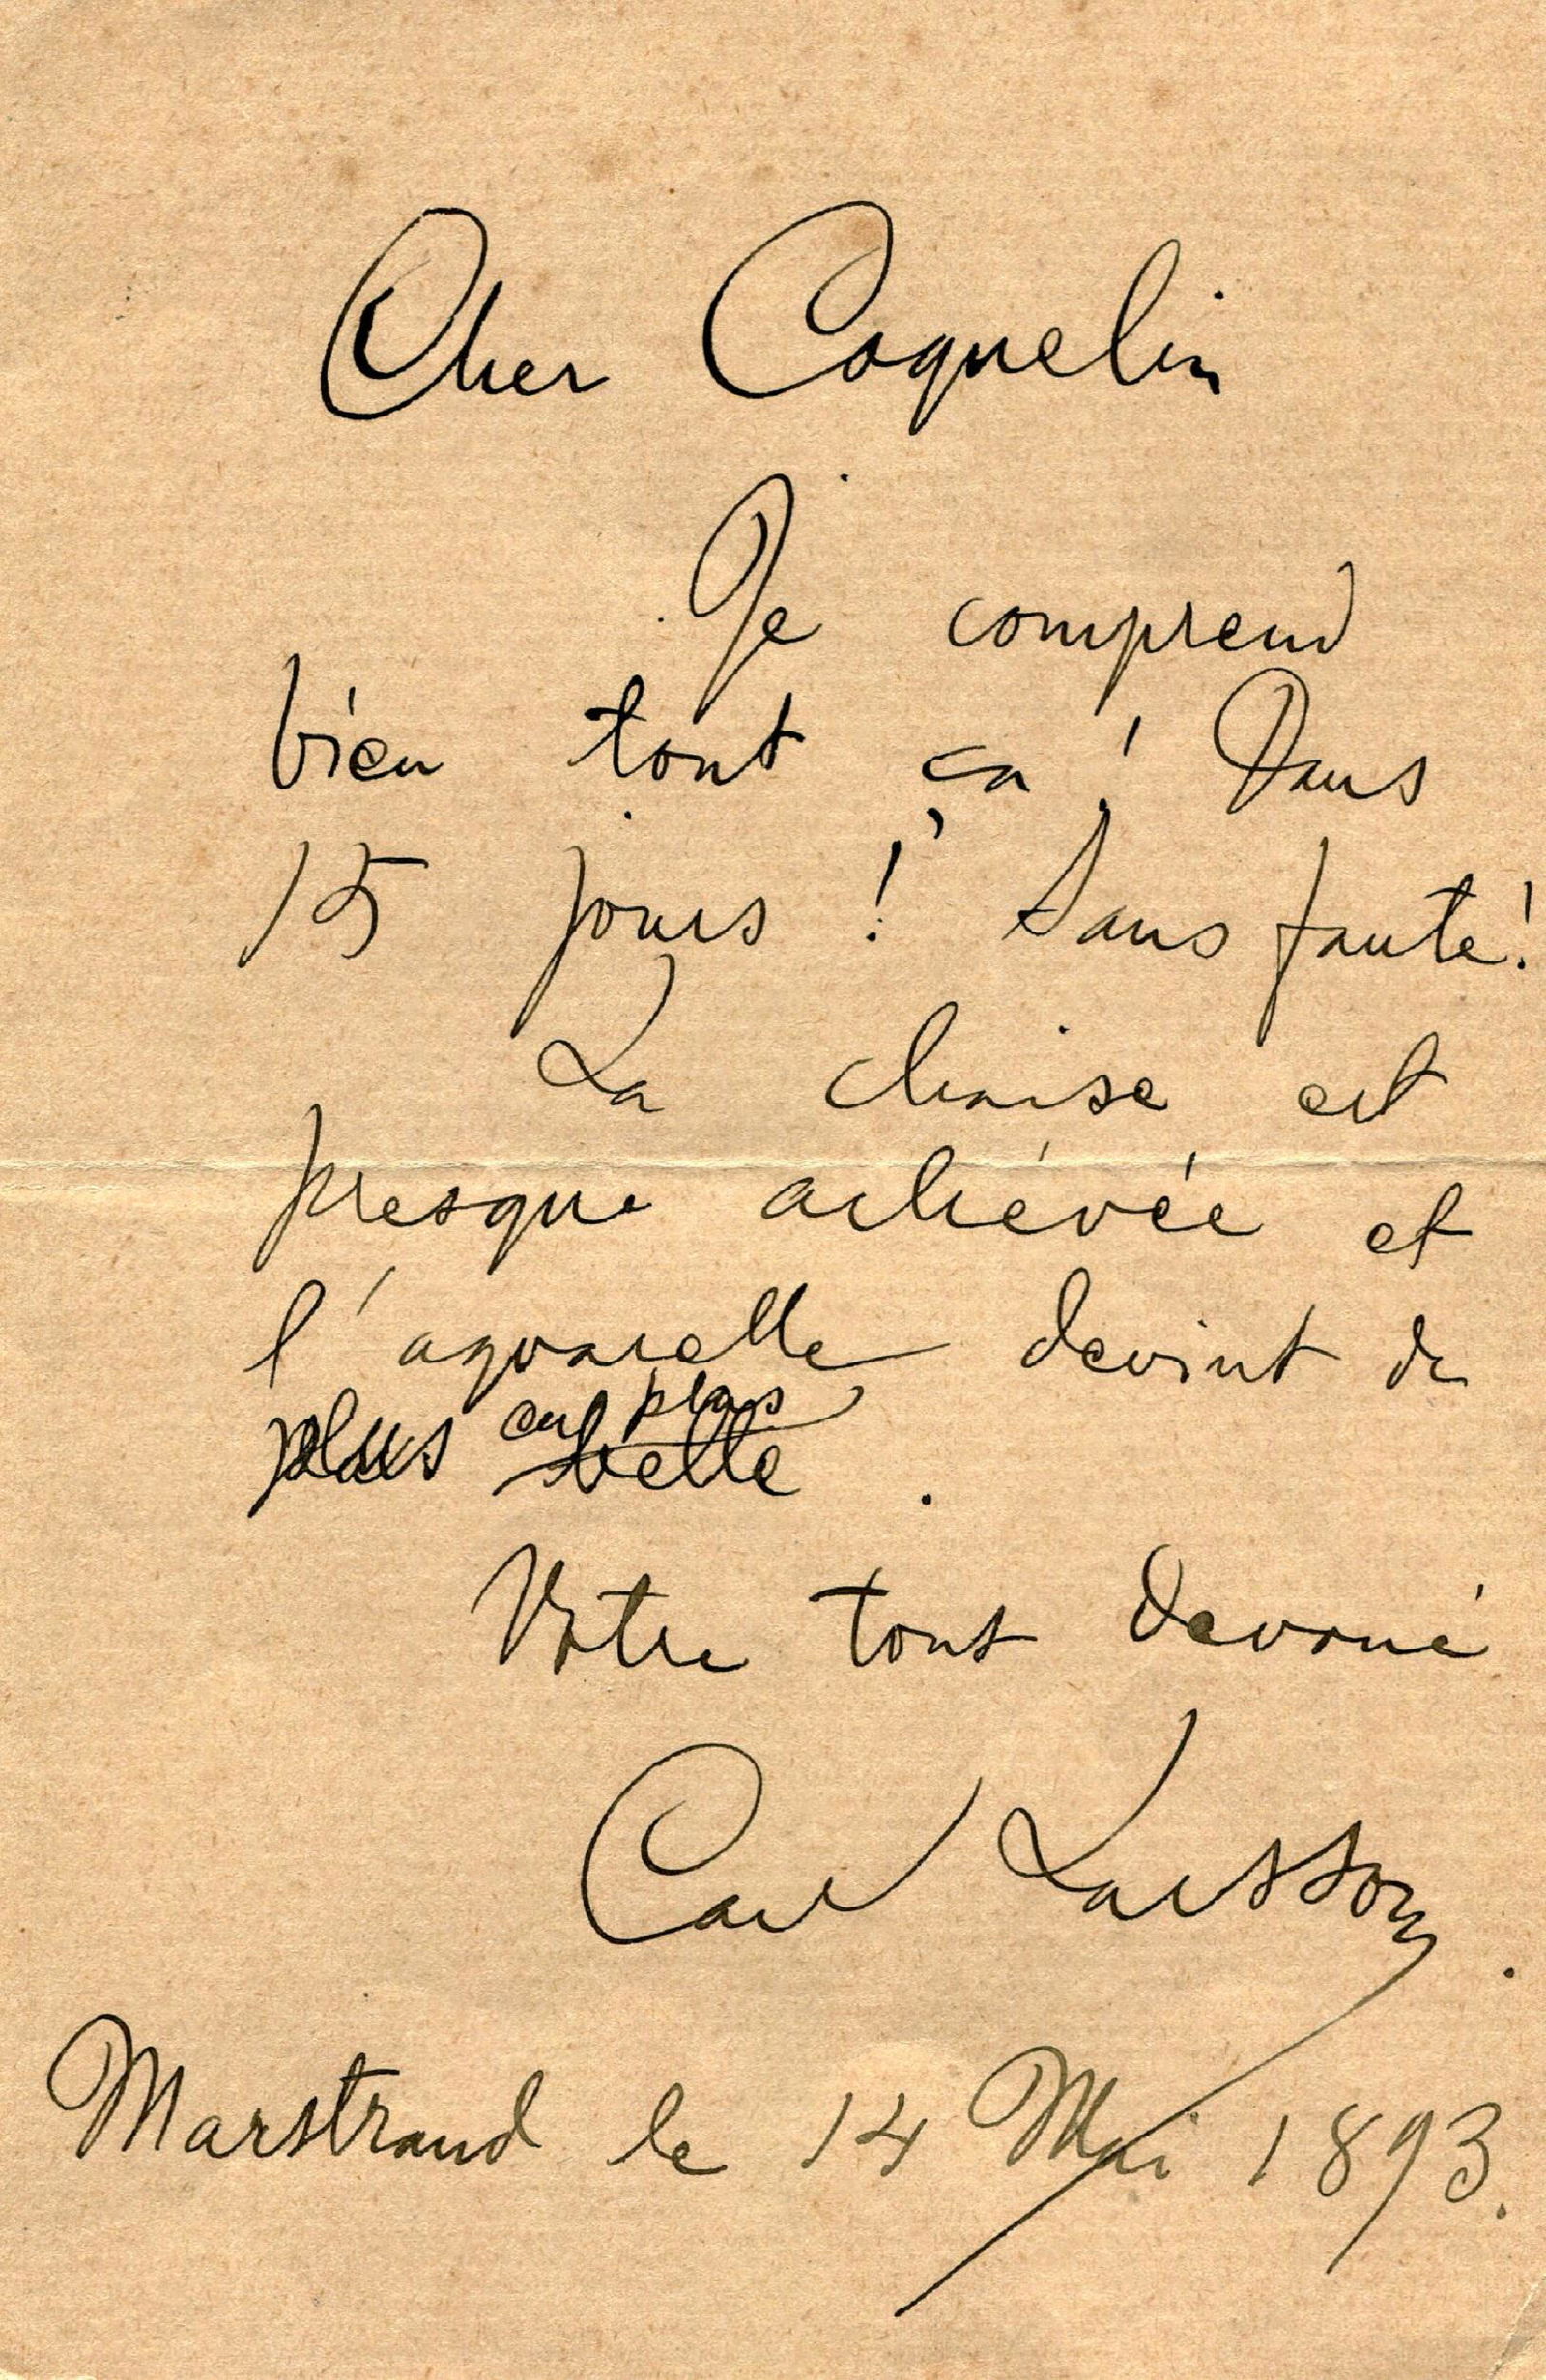 Cher Coquelin
Je comprend
bien tout ça! Dans
15 jours! Sans faute!
La chaise est
presque achévée et
l'aqvarelle devint de
plus en plus
belle.
Votre tout devoué
Carl Larsson.
Marstrand le 14 Mai 1893.